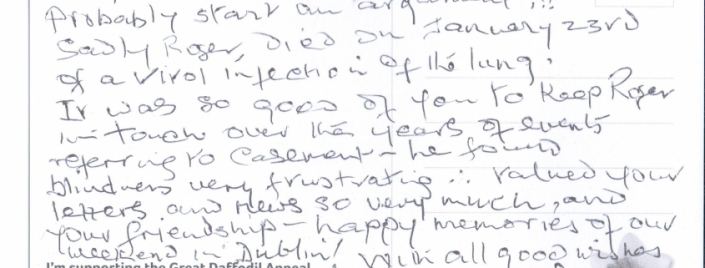 Probably start an argument !!!
Sadly Roger, Died on January 23rd
of a Virol infection of the lung.
It was so good of you to Keep Roger
in touch over the years of events
referring to Casement – he found
blindness very frustrating ∴ valued your
letters and News so very much, and
your friendship – happy memories of our
weekend in Dublin! With all good wishes
I'm supporting the Great Daffodil Appeal